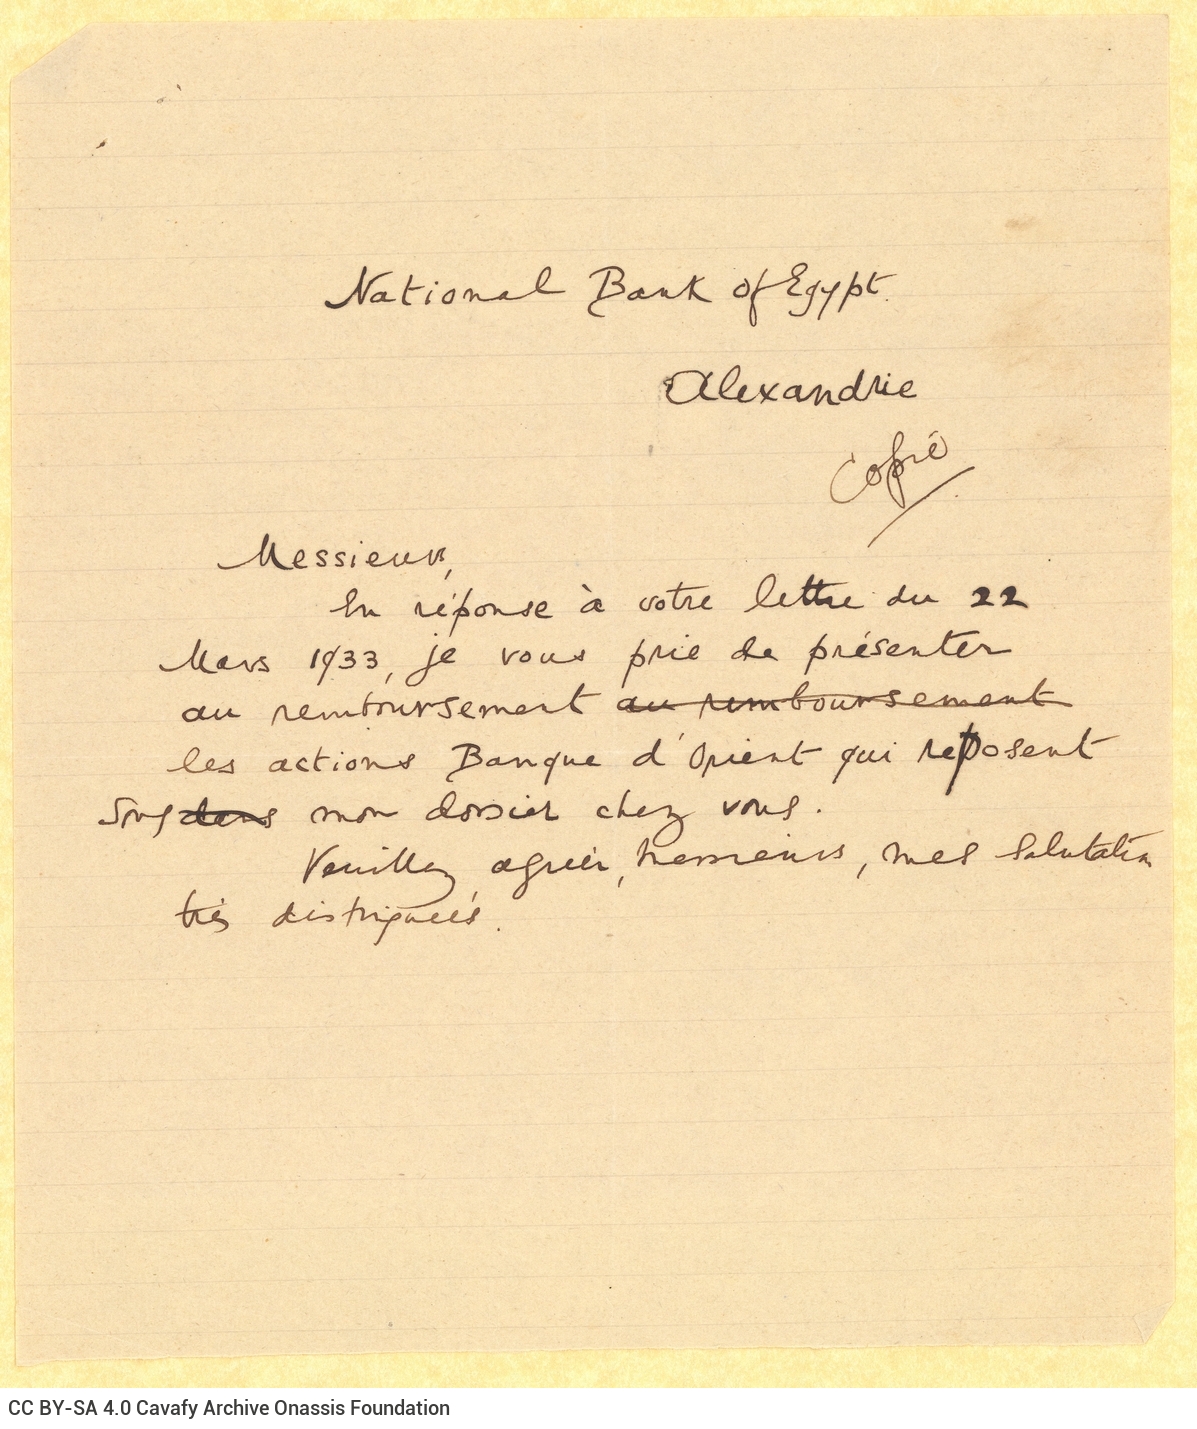 National Bank of Egypt.
Alexandrie
Copié
Messieurs,
En réponse à votre lettre du 22
Mars 1933, je vous prie de présenter
au remboursement au remboursement
les actions Banque d'Orient qui reposent
sous dans mon dossier chez vous.
Veuillez agréer, Messieurs, mes salutations
très distinguées.
CC BY-SA 4.0 Cavafy Archive Onassis Foundation